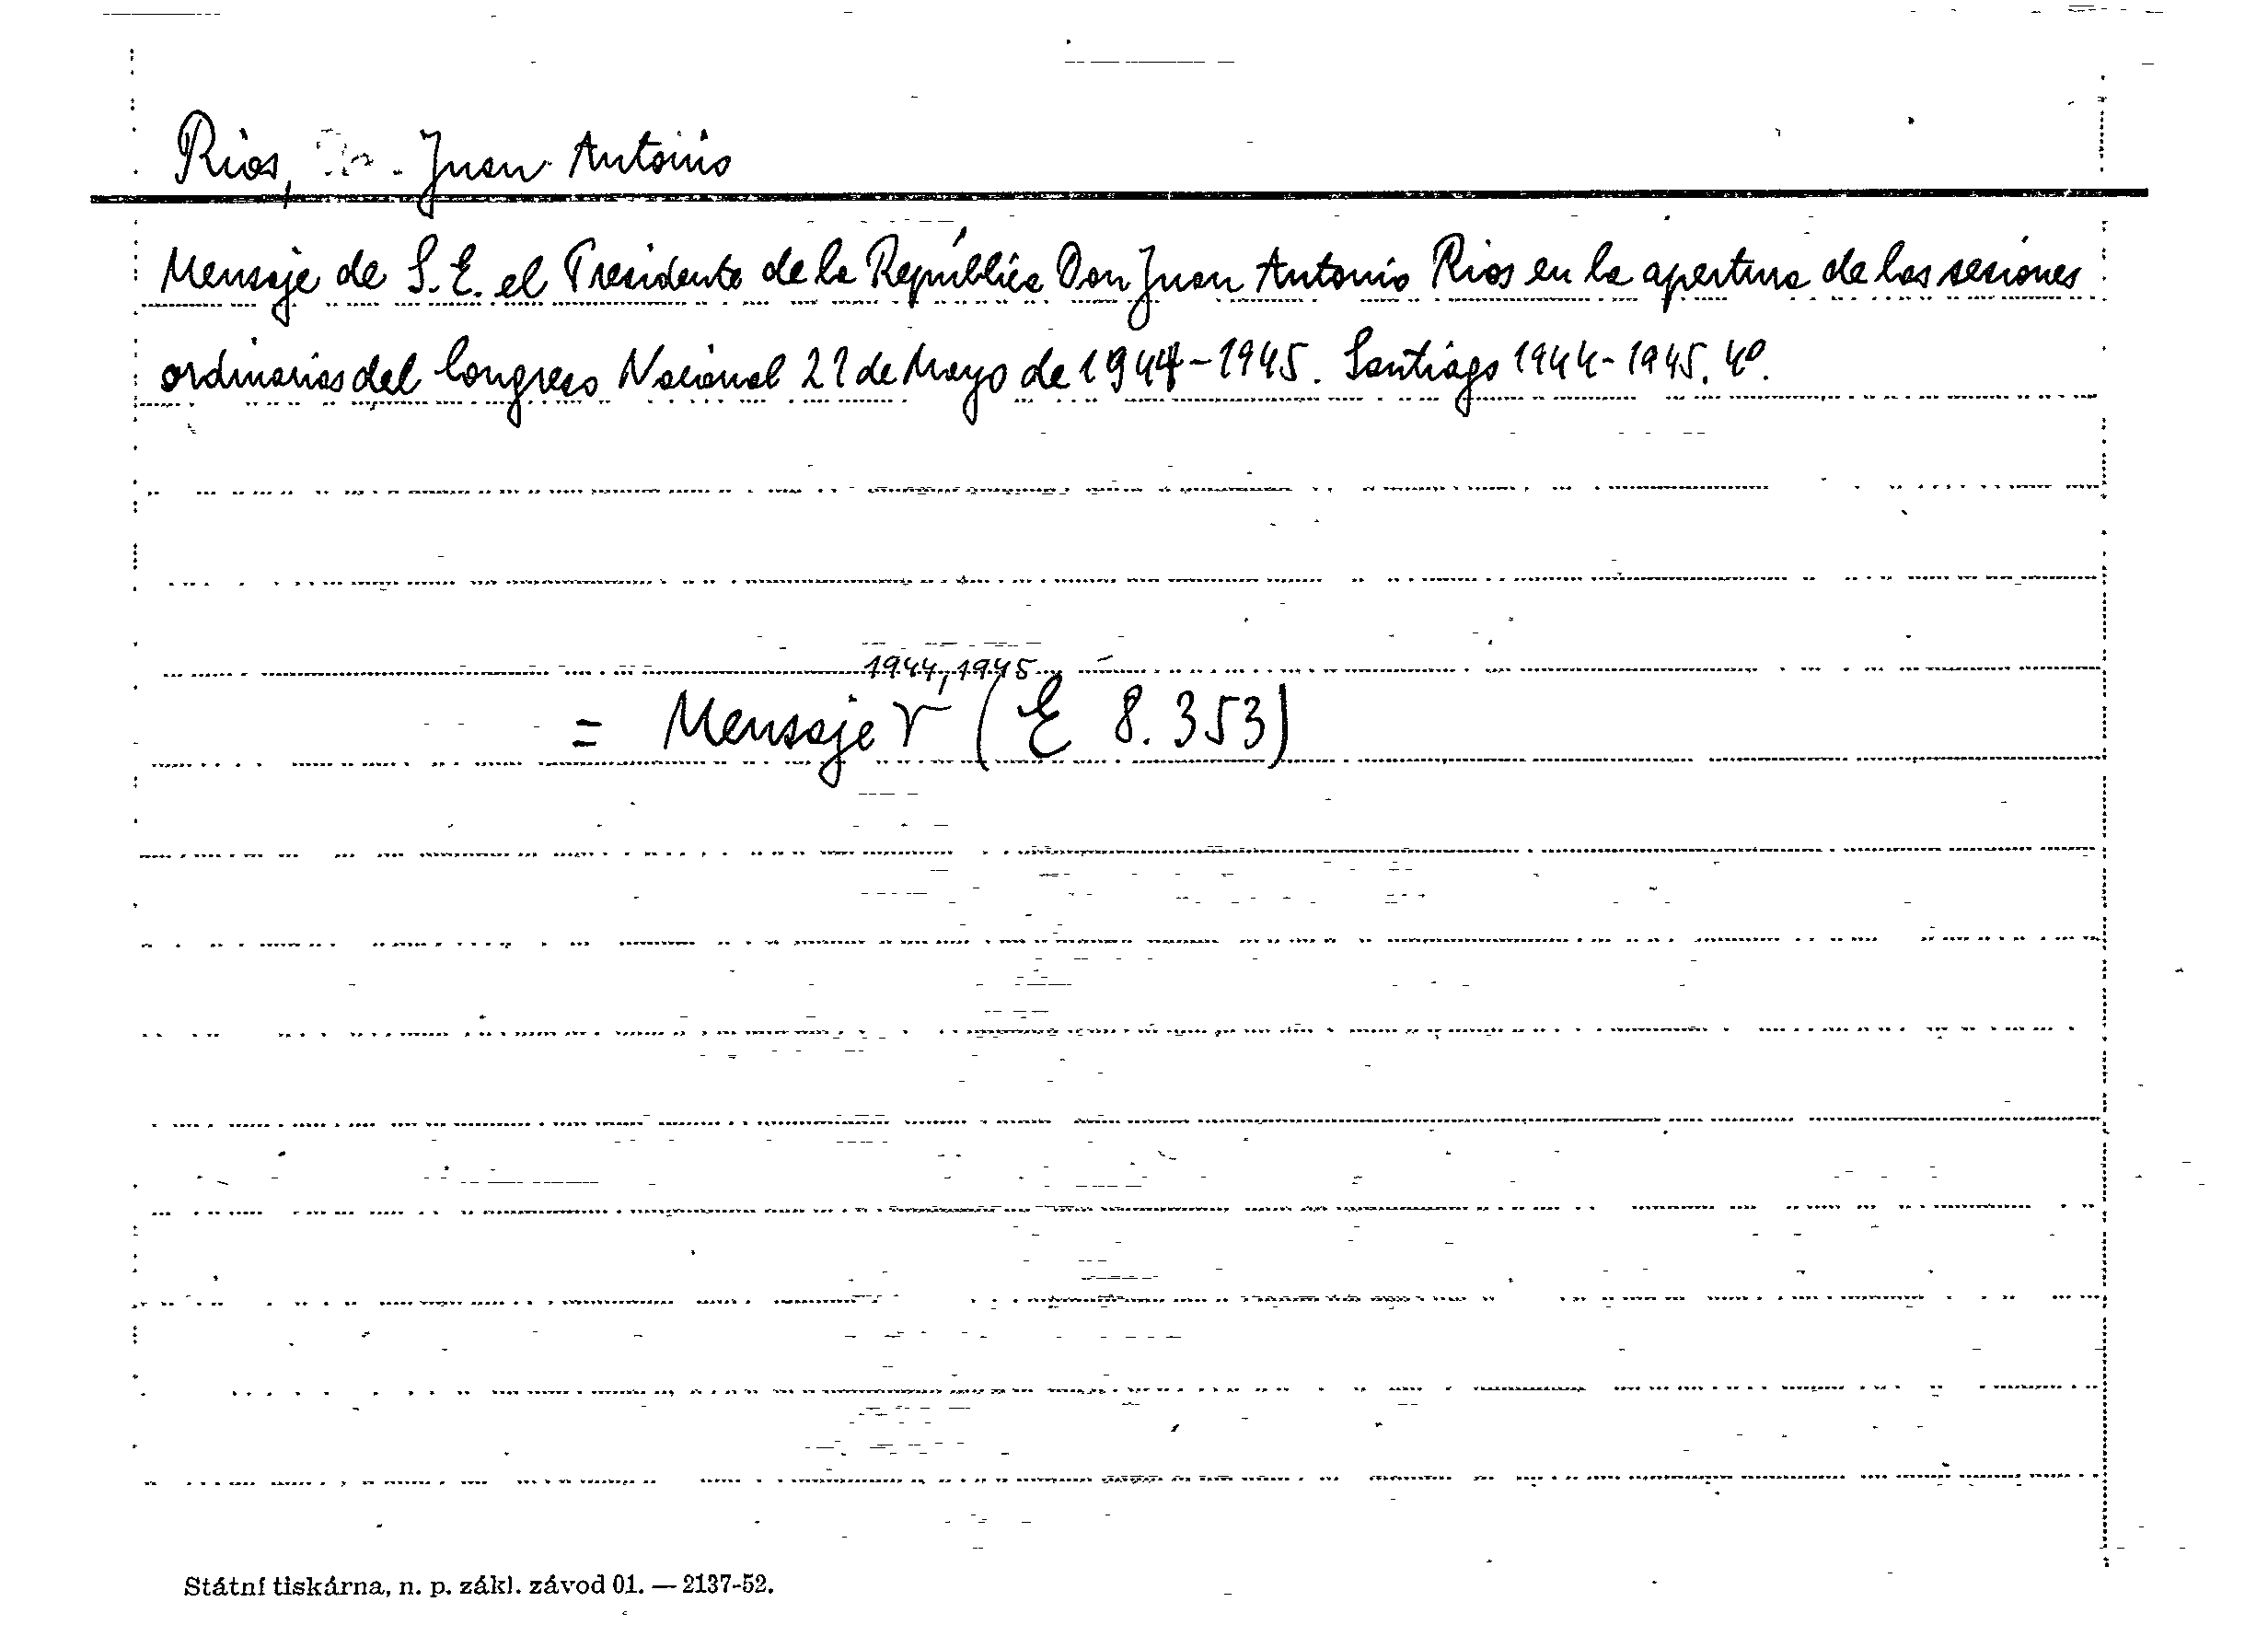 Rios, Juan Antonio
Mensaje de S. E. el Presidente de la República Don Juan Antonio Rios en la apertura de las sesiones
ordinarias del Congreso Nacional 21 de Mayo de 1944-1945. Santiago 1944-1945. 4º.
1944, 1945
= Mensaje (E 8.353)
Státní tiskárna, n. p. zákl. závod 01. — 2137-52.